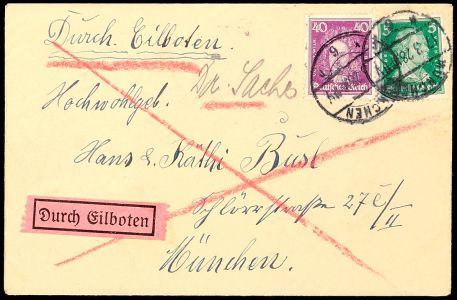 Durch Eilboten.
40 40
Deutsches Reich
5 5
MÜNCHEN
Dr. Sachs
Hochwohlgeb.
Hans & Käthi Busl
Schlörrstrasse 27 I/II
Durch Eilboten
München.